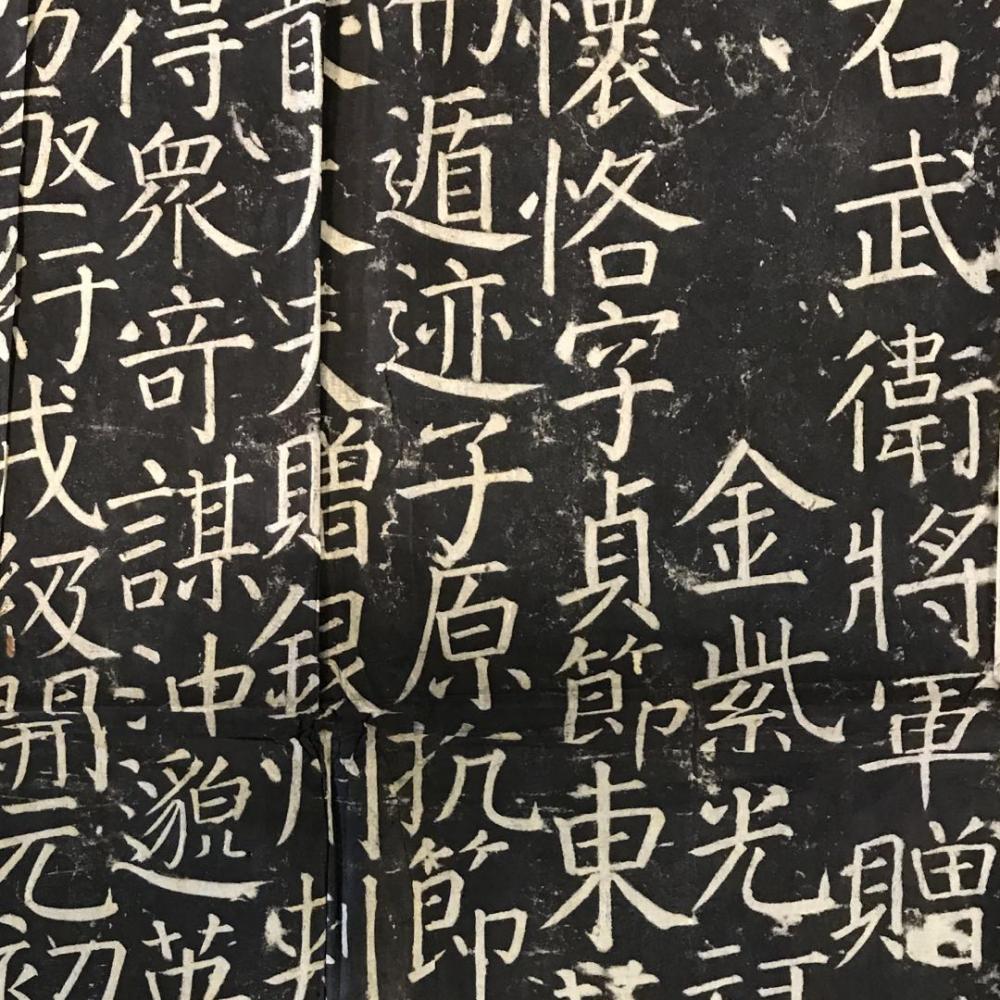 右武衛將軍贈
金紫光
懷恪字貞節東
遁迹子原抗節
大夫贈銀州
得眾奇謀沖邈英
級開元初